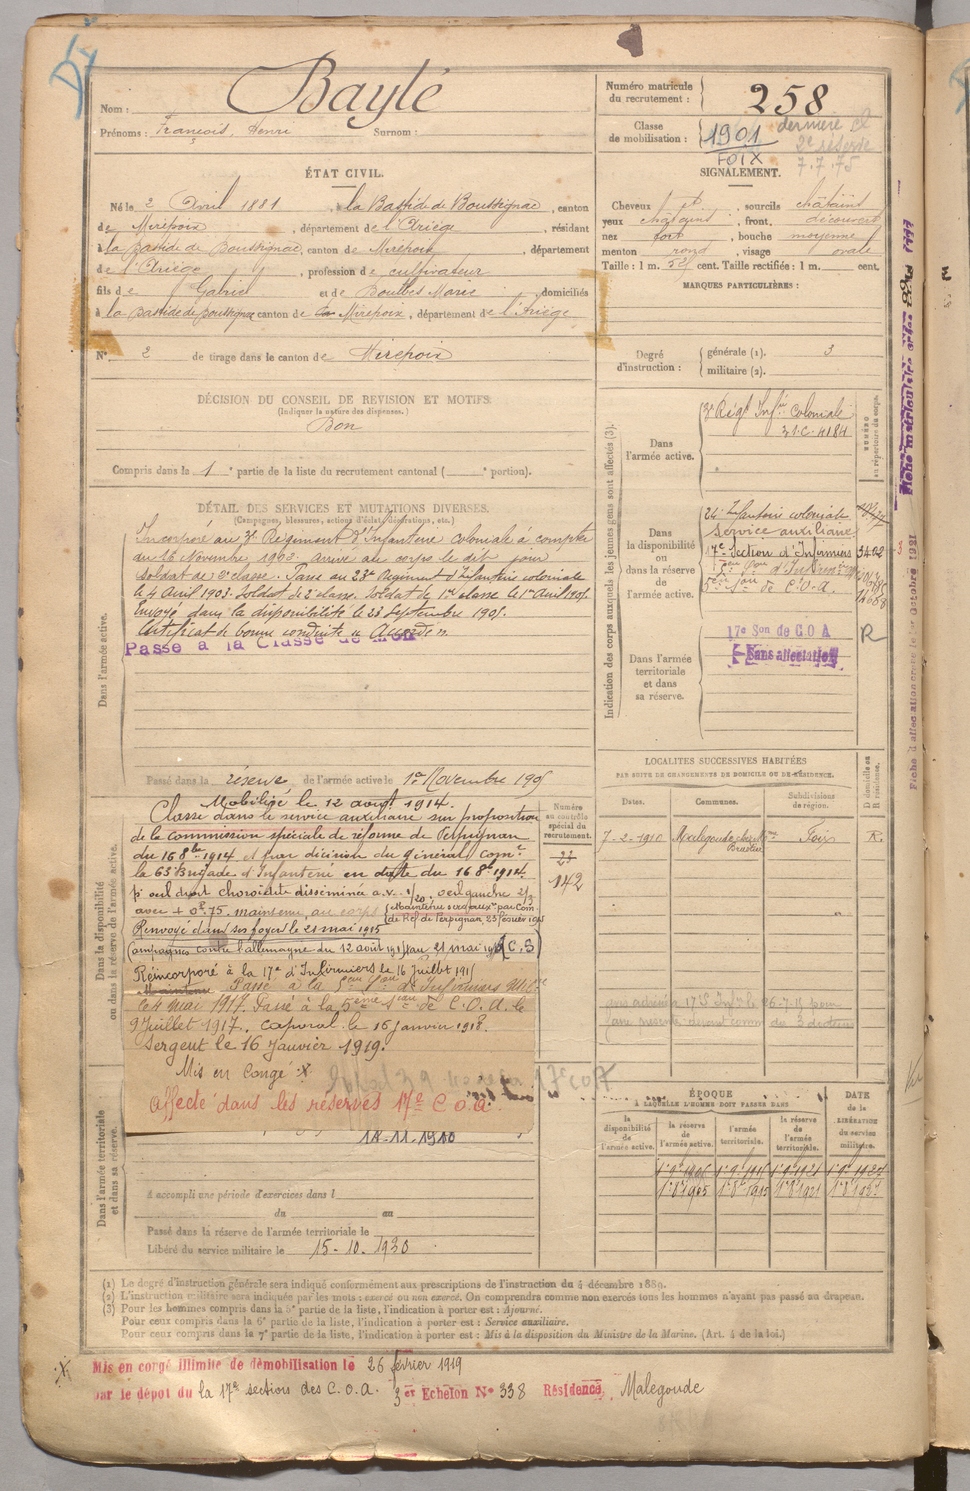 Nom : Baylé
Prénoms : François, Henri Surnom :
Numéro matricule du recrutement : 258
Classe de mobilisation : 1901
FOIX
dernière
2e réserve
7.7.75
ÉTAT CIVIL.
Né le 2 Avril 1881, à la Bastide de Bousignac, canton
de Mirepoix, département de l'Ariège, résidant
à la Bastide de Bousignac, canton de Mirepoix, département
de l'Ariège, profession de cultivateur
fils de Gabriel et de Boulbes Marie, domiciliés
à la Bastide de Bousignac canton de Mirepoix, département de l'Ariège
N° 2 de tirage dans le canton de Mirepoix
SIGNALEMENT.
Cheveux et sourcils châtains
yeux châtains, front découvert
nez fort, bouche moyenne
menton rond, visage ovale
Taille : 1 m. cent. Taille rectifiée : 1 m. cent.
MARQUES PARTICULIÈRES :
Degré d'instruction : générale (1). 3
militaire (2).
DÉCISION DU CONSEIL DE REVISION ET MOTIFS.
(Indiquer la nature des dispenses.)
Bon
Compris dans la 1e partie de la liste du recrutement cantonal ( e portion).
DÉTAIL DES SERVICES ET MUTATIONS DIVERSES.
(Campagnes, blessures, actions d'éclat, décorations, etc.)
Dans l'armée active.
Incorporé au 3e Régiment d'Infanterie Coloniale à compter
du 16 Novembre 1902. Arrivé au corps le dit jour
soldat de 2e classe. Passé au 22e Régiment d'Infanterie coloniale
le 4 Avril 1903. Soldat de 2e classe. Soldat de 1re classe le 1er Avril 1905.
Envoyé dans la disponibilité le 23 Septembre 1905.
Certificat de bonne conduite "Accordé".
Passé à la Classe de
Passé dans la réserve de l'armée active le 1er Novembre 1905
Dans la disponibilité ou dans la réserve de l'armée active.
Mobilisé le 12 août 1914.
Classé dans le service auxiliaire sur proposition
de la commission spéciale de réforme de Perpignan
du 16 8bre 1914 et par décision du général comt
la 63e Brigade d'Infanterie en date du 16 8bre 1914.
pr oeil droit choroïdite disséminée a.v. 1/20, oeil gauche
avec + 0d.75. maintenu au corps (Maintenu serv auxre par Com
de Réf de Perpignan, 23 février 1915
Renvoyé dans ses foyers le 21 mai 1915
Campagnes contre l'allemagne du 12 août 1914 au 21 mai 1915 (C.S)
Réincorporé à la 17e d'Infirmiers le 16 juillet 1915
Passé à la 5ème Son d'Infirmiers Mres
le 4 mai 1917. Passé à la 5ème Son de C.O.A. le
9 juillet 1917. caporal le 16 janvier 1918.
Sergent le 16 Janvier 1919.
Mis en congé X
Affecté dans les réserves 17e C O A.
Numéro au contrôle spécial du recrutement.
142
Indication des corps auxquels les jeunes gens sont affectés (3).
Dans l'armée active.
3e Régt Infie Coloniale
31.C.4184
NUMÉRO au répertoire du corps.
Dans la disponibilité ou dans la réserve de l'armée active.
24e Infanterie coloniale
Service auxiliaire
17e Section d'Infirmiers
5ème Son d'Infirmiers
5ème Son de C.O.A.
Dans l'armée territoriale et dans sa réserve.
17e Son de C.O A
Sans affectation
R
Fiche matriculaire
Fiche d'affectation créée le 1er Octobre 1921
LOCALITÉS SUCCESSIVES HABITÉES
PAR SUITE DE CHANGEMENTS DE DOMICILE OU DE RÉSIDENCE.
Dates. Communes. Subdivisions de région. D domicile ou R résidence.
7-2-1910 Malegoude Foix R.
ÉPOQUE
À LAQUELLE L'HOMME DOIT PASSER DANS
la disponibilité de l'armée active. la réserve de l'armée active. l'armée territoriale. la réserve de l'armée territoriale.
DATE de la LIBÉRATION du service militaire.
Dans l'armée territoriale et dans sa réserve.
A accompli une période d'exercices dans l
du au
Passé dans la réserve de l'armée territoriale le
Libéré du service militaire le 15-10.1930
(1) Le degré d'instruction générale sera indiqué conformément aux prescriptions de l'instruction du 4 décembre 1889.
(2) L'instruction militaire sera indiquée par les mots : exercé ou non exercé. On comprendra comme non exercés tous les hommes n'ayant pas passé au drapeau.
(3) Pour les hommes compris dans la 5e partie de la liste, l'indication à porter est : Ajourné.
Pour ceux compris dans la 6e partie de la liste, l'indication à porter est : Service auxiliaire.
Pour ceux compris dans la 7e partie de la liste, l'indication à porter est : Mis à la disposition du Ministre de la Marine. (Art. 4 de la loi.)
X Mis en congé illimité de démobilisation le 26 février 1919
par le dépôt du la 17e section des C.O.A. 3er Echelon N° 338 Résidence, Malegoude